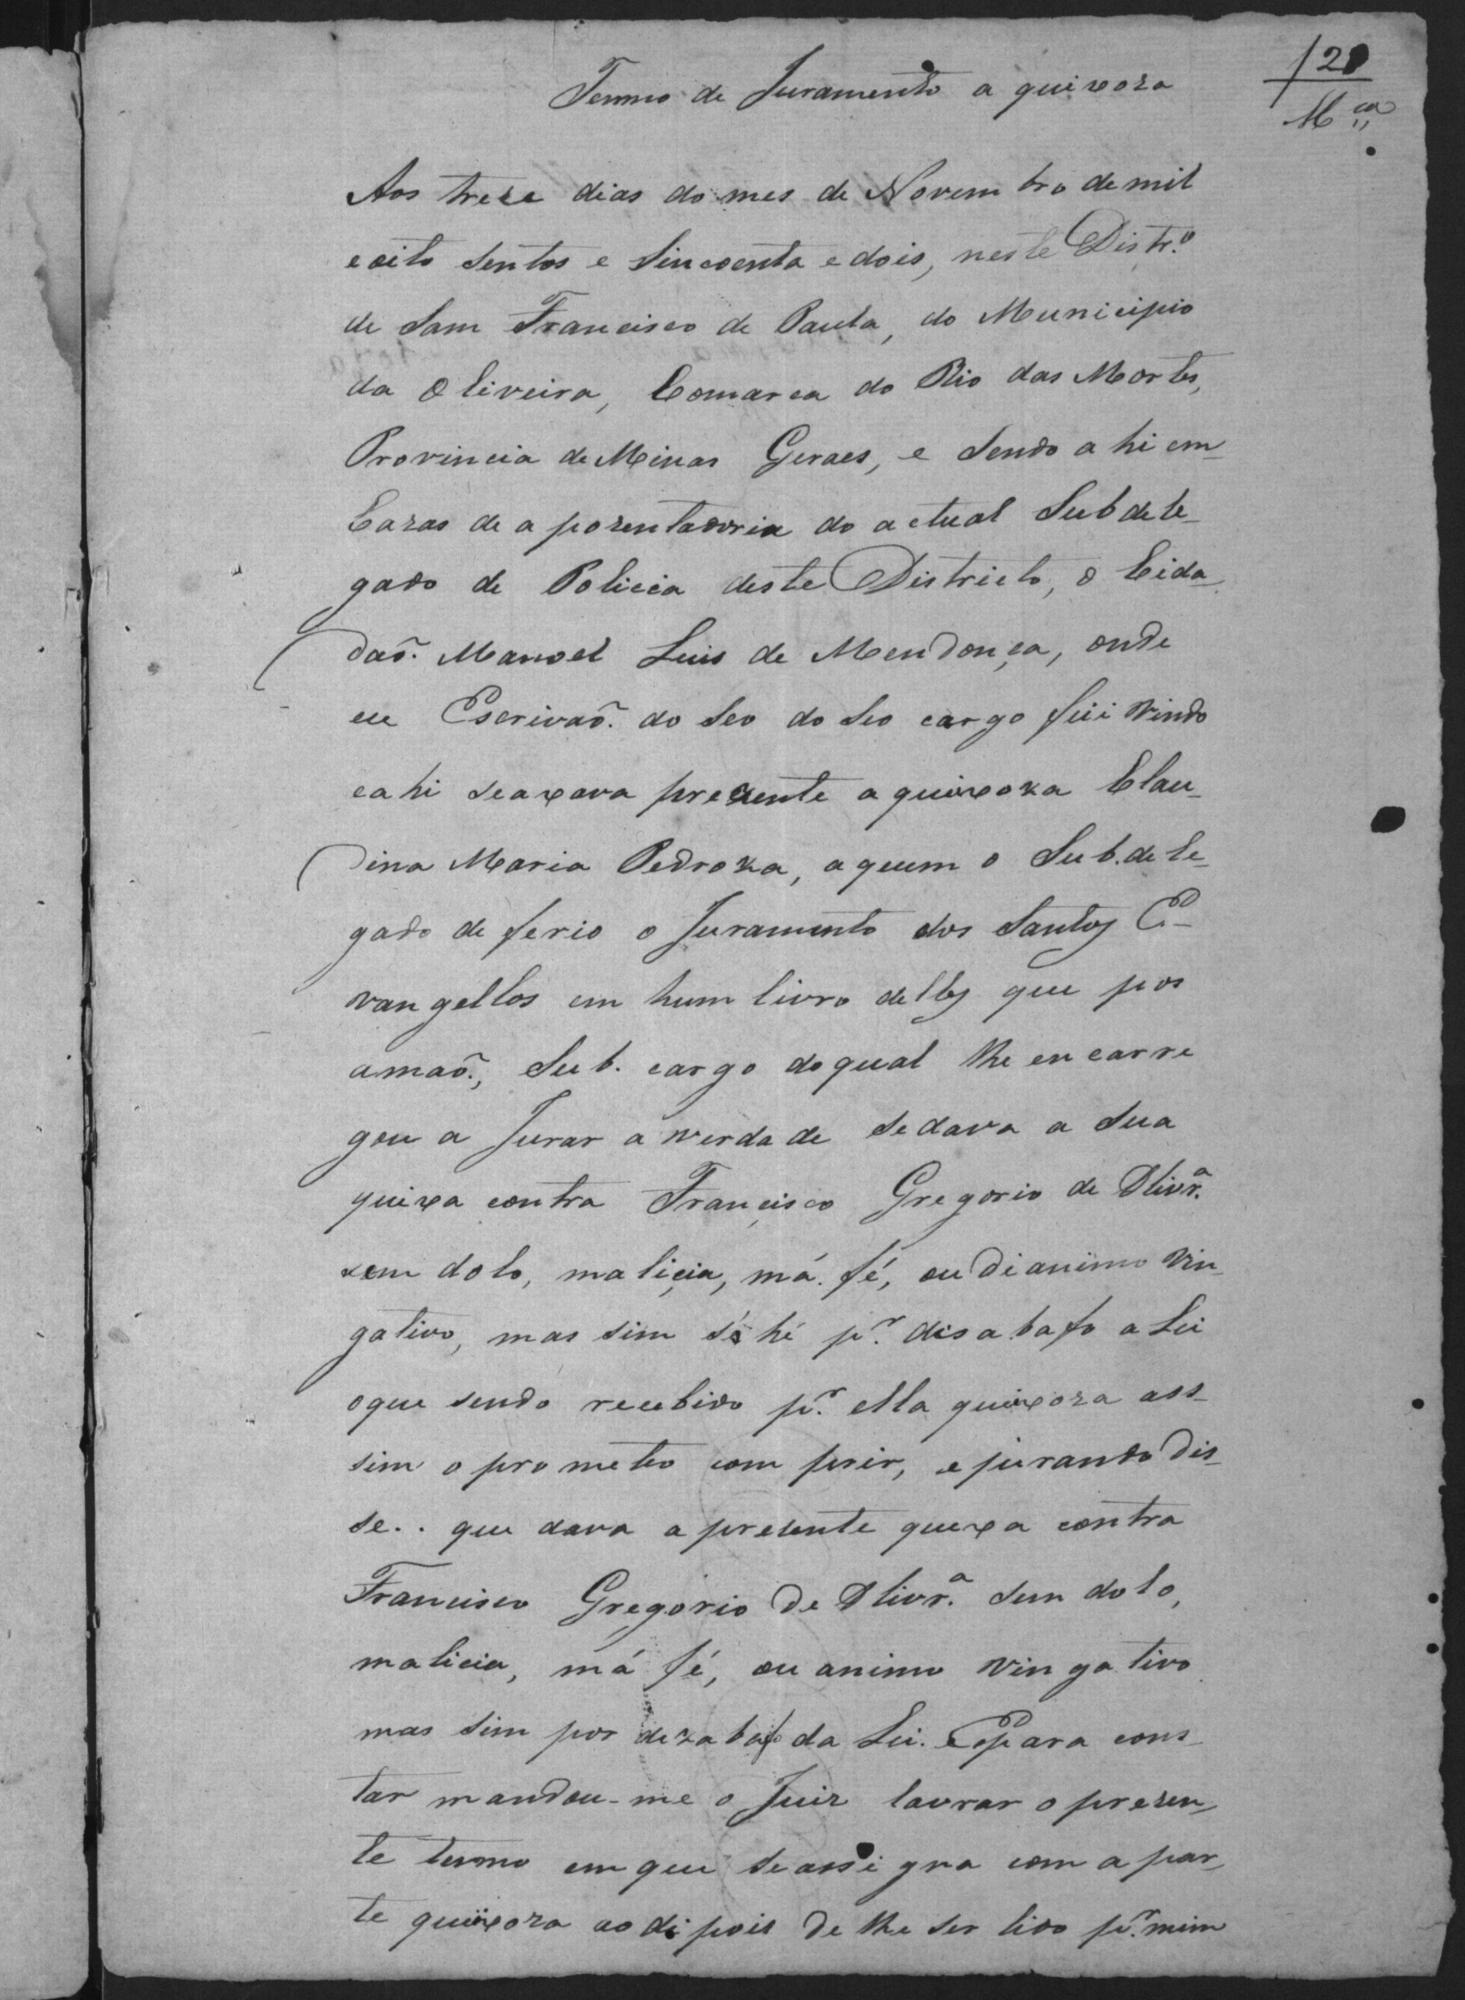 Termo de Juramento a quixoza
Mça
Aos treze dias do mes de Novembro de mil
e oito sentos e sincoenta e dois, neste Distr.º
de Sam Francisco de Paula, do Municipio
da Oliveira, Comarca do Rio das Mortes,
Provincia de Minas Geraes, e sendo a hi em
Cazas de a pozentadoria do actual Subdele-
gado de Policia deste Districto, o Cida-
daõ. Manoel Luis de Mendonça, onde
eu Escrivaõ. do seo do seo cargo fui vindo
e a hi se axava prezente a quixoza Clau-
dina Maria Pedroza, a quem o Sub.dele-
gado de ferio o Juramento dos Santos E-
van gellos em hum livro delles que pos
a maõ., Sub. cargo do qual lhe en carre
gou a Jurar a verda de se dava a sua
quixa contra Francisco Gregorio de Olivr.ª
sem dolo, malicia, má. fé, ou di animo vin-
gativo, mas sim só hé p.r disabafo a Lei
o que sendo recebido p.r ella quixoza ass-
sim o prometeo com prir, e jurando dis-
se.. que dava a prezente quexa contra
Francisco Gregorio de Olivr.ª sem dolo,
malicia, má fé, ou animo vin ga tivo
mas sim por dezabafo da Lei. E para cons-
tar mandou-me o Juiz lavrar o prezen-
te termo em que se assi gna com a par-
te quixoza ao di pois de lhe ser lido p.r mim